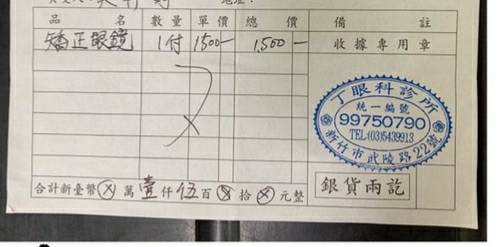 品名 數量 單價 總價 備註
矯正眼鏡 1付 1500- 1,500- 收據專用章
丁眼科診所
統一編號
99750790
TEL:(03)5439913
新竹市武陵路22號
合計新臺幣⊗萬壹仟伍百⊗拾⊗元整 銀貨兩訖